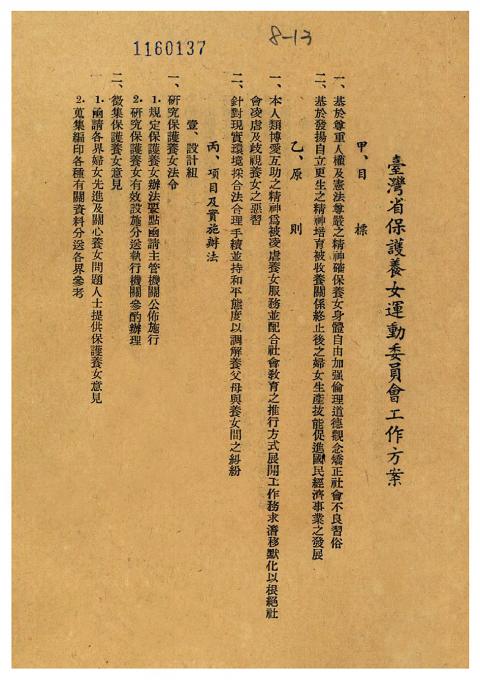 1160137
8-13
臺灣省保護養女運動委員會工作方案
甲、目標
一、基於尊重人權及憲法尊嚴之精神確保養女身體自由加强倫理道德觀念矯正社會不良習俗
二、基於發揚自立更生之精神培育被收養關係終止後之婦女生產技能促進國民經濟事業之發展
乙、原則
一、本人類博愛互助之精神爲被凌虐養女服務並配合社會教育之推行方式展開工作務求潛移默化以根絕社
會凌虐及歧視養女之惡習
二、針對現實環境採合法合理手續並持和平態度以調解養父母與養女間之糾紛
丙、項目及實施辦法
壹、設計組
一、研究保護養女法令
1.規定保護養女辦法要點函請主管機關公佈施行
2.研究保護養女有效設施分送執行機關參酌辦理
二、徵集保護養女意見
1.函請各界婦女先進及關心養女問題人士提供保護養女意見
2.蒐集編印各種有關資料分送各界參考